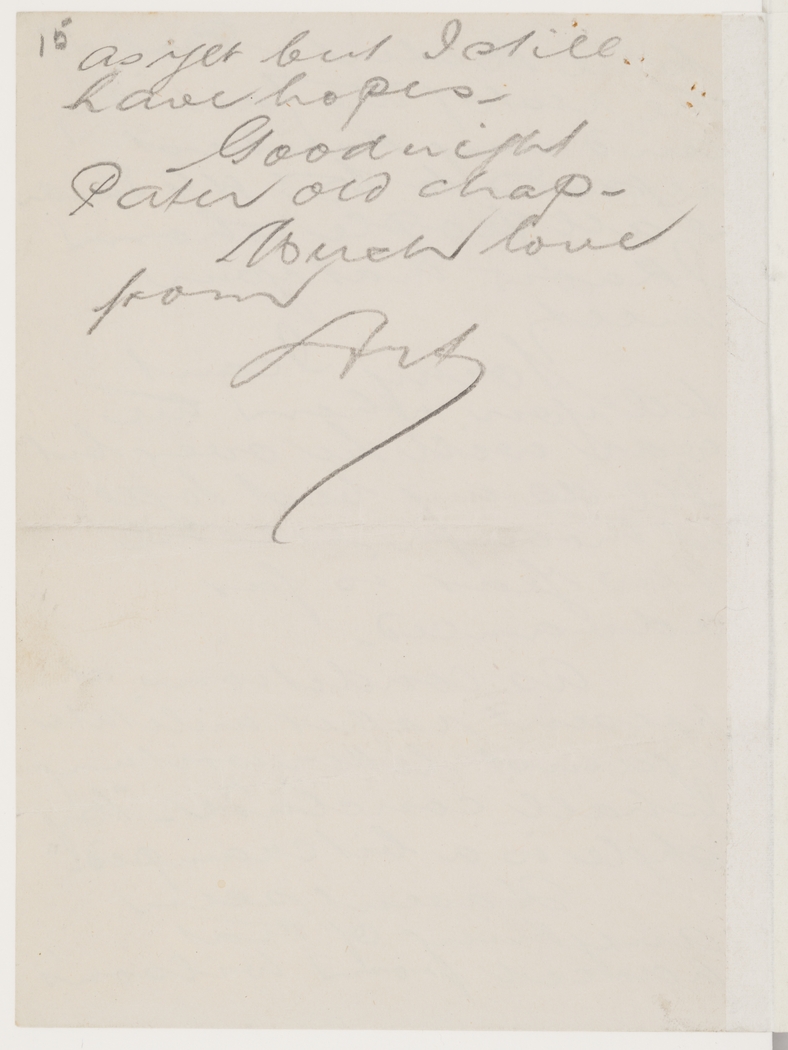 15
as yet but I still
have hopes -
Goodnight
Pater old chap -
Much love
from
Art